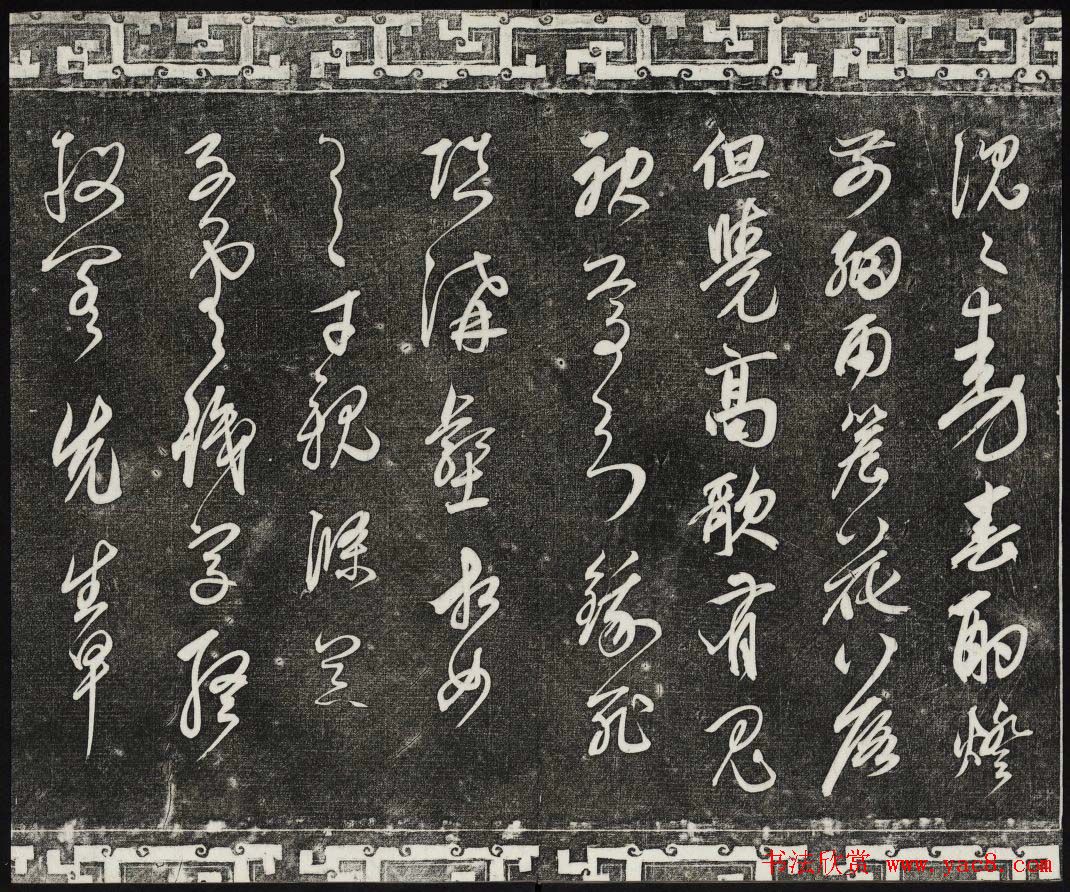 沉〻動春酌燈
前細雨簷花落
但覺高歌有鬼
神焉知餓死
填溝壑相如
逸才親滌器
子雲識字終
投閣先生早
书法欣赏 www.yac8.com